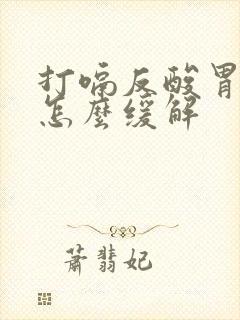 打嗝反酸胃
怎麼缓解
蕭翡妃